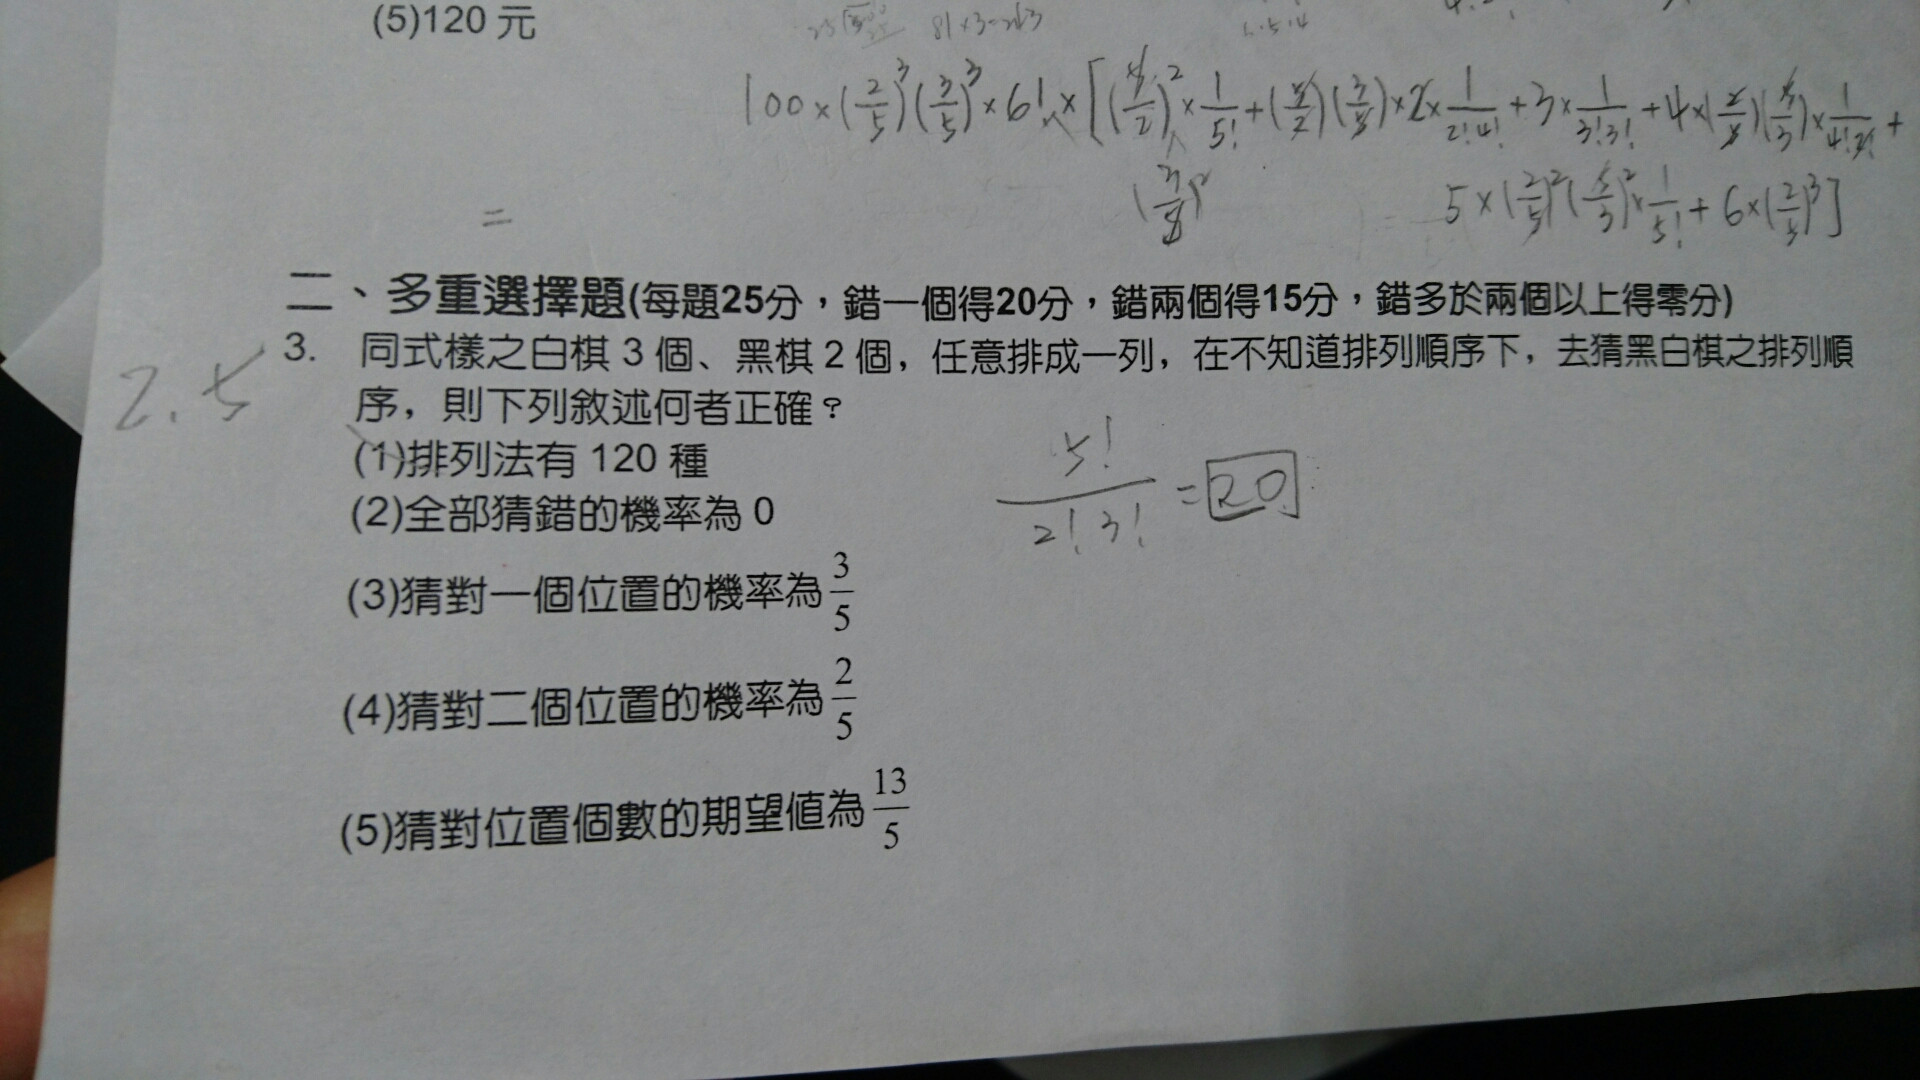 (5)120 元
81×3=243
6·5·4
100×(2/5)³(3/5)³×6!×[(5/2)²×1/5!+(5/2)(3/5)×2×1/2!4!+3×1/3!3!+4×(2/5)(5/3)×1/4!2!+
(3/5)² 5×(2/5)²(5/3)²×1/5!+6×(2/5)³]
=
二、多重選擇題(每題25分，錯一個得20分，錯兩個得15分，錯多於兩個以上得零分)
2.5 3. 同式樣之白棋 3 個、黑棋 2 個，任意排成一列，在不知道排列順序下，去猜黑白棋之排列順
序，則下列敘述何者正確？
(1)排列法有 120 種
5!/2!3! = 20
(2)全部猜錯的機率為 0
(3)猜對一個位置的機率為 3/5
(4)猜對二個位置的機率為 2/5
(5)猜對位置個數的期望值為 13/5